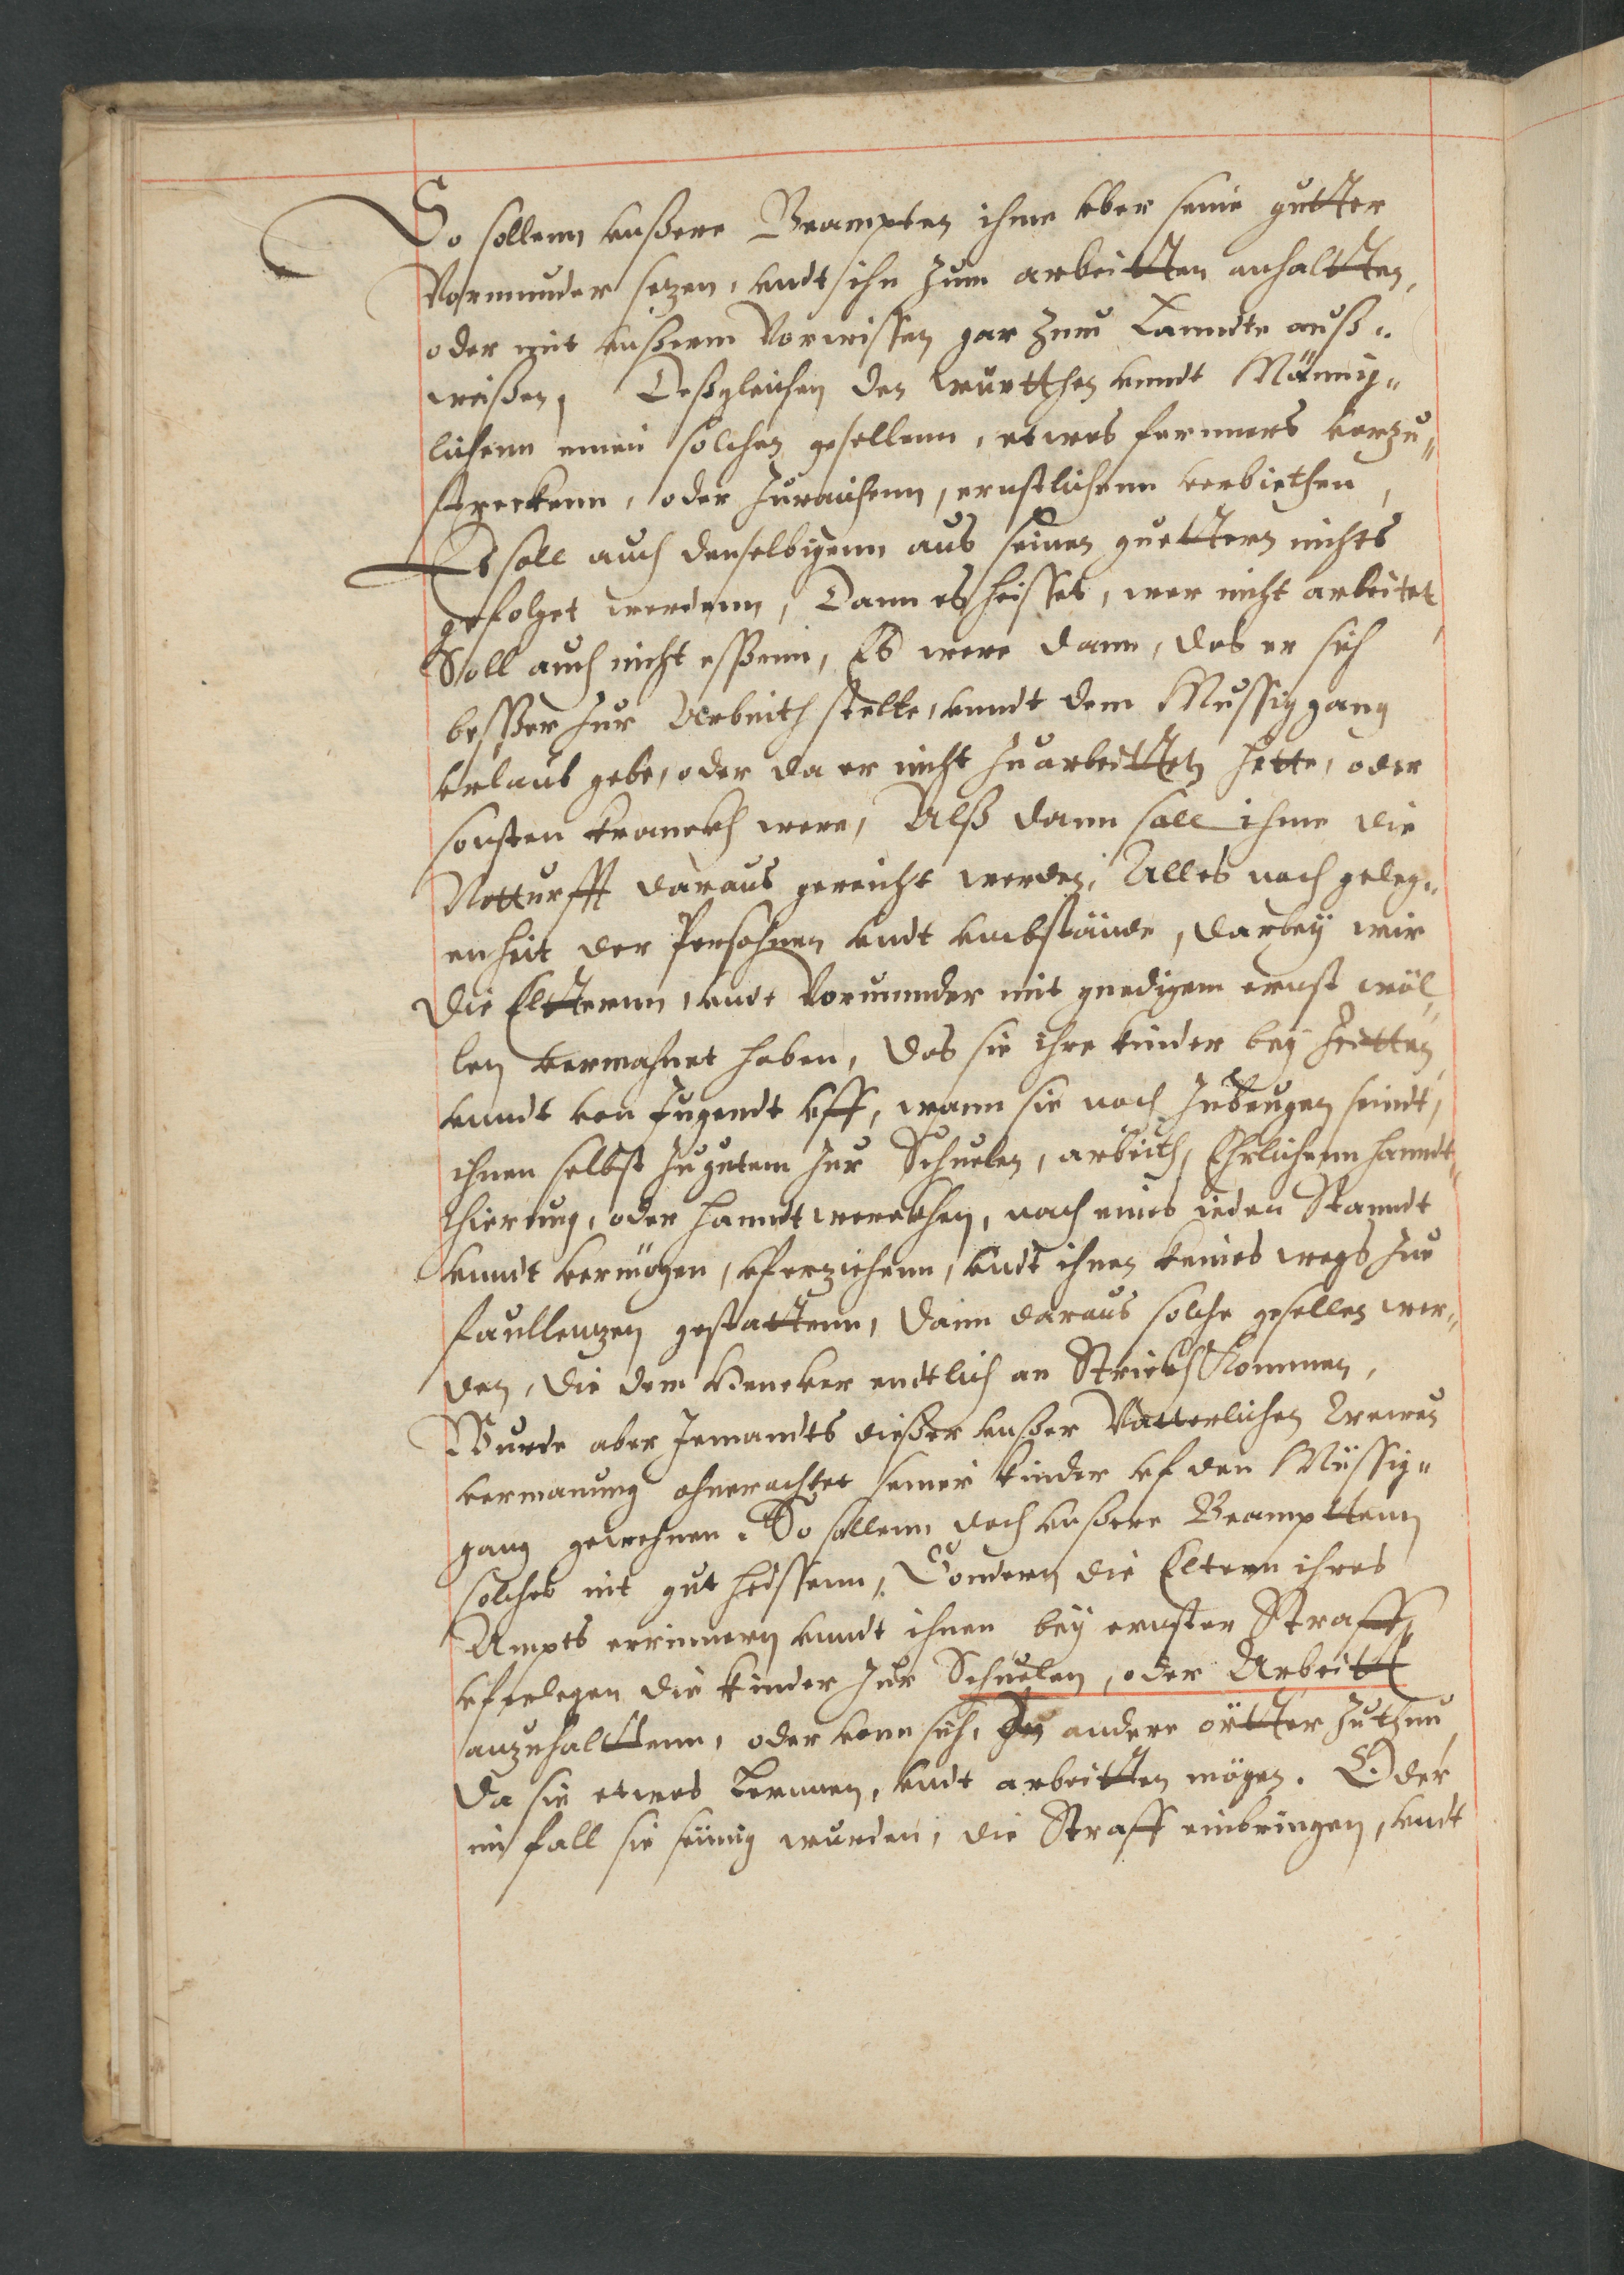 So sollenn vnßere Beampten ihme vber seine gutter
Vormunder setzen, vndt ihn zum arbeitten anhaltten,
oder mit vnßerm Vorwissen gar zum Lanndte auß„
weisen, Deßgleichen den württhen vnndt Männig„
lichenn einen solchen gesellenn, etwas ferners vorzu„
streckenn, oder zuraichenn, ernstlichenn verbiethen,
Es soll auch denselbigenn aus seinen guettern nichts
gefolget werdenn, Dann es heisset, wer nicht arbeitet,
Soll auch nicht essenn, Es were dann, das er sich
besser zur Arbeith stelte, vnndt dem Mussiggang
vrlaub gebe, oder da er nicht zuarbeitten hette, oder
sonsten kranckh were, Alß dann soll ihme die
Notturfft daraus gereicht werden, Alles nach geleg„
enheit der Persohnen vndt vmbstände, darbeÿ wir
die Eltternn, vndt Vormunder mit gnedigem ernst wöl„
len vermahnet haben, das sie ihre kinder beÿ Zeitten,
vnndt von Jugendt vff, wann sie noch zubeugen seindt,
ihnen selbst zugutem zur Schuelen, arbeith, Ehrlichenn handt„
thierung, oder handtwerckhen, nach eines ieden Standt
vnndt vermögen, vferziehenn, vndt ihnen keines wegs zue
faullentzen gestattenn, dann daraus solche gesellen wer„
den, die dem Hencker endtlich an Strickh kommen,
Wurde aber Jemandts dießer vnßer Vatterlichen Trewen
vermanung ohnerachtet seine kinder vf den Müssig„
gang gewehnen. So sollenn doch vnßere Beampttenn
solches nit gut heissenn, Sondern die Eltern ihres
Ampts errinnern vnndt ihnen beÿ ernster Straff
vferlegen die kinder zur Schuelen, oder Arbeitt
anzuhalttenn, oder vonn sich, In andere örtter zuthun
da sie etwas Lernnen, vndt arbeitten mögen. Oder
im fall sie seümig wurden, die Straff einbringen, vndt